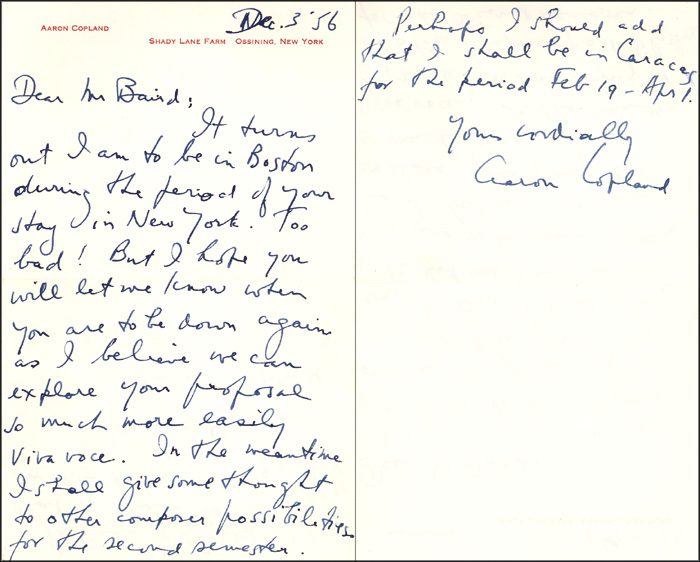 AARON COPLAND
Dec. 3 '56
SHADY LANE FARM OSSINING, NEW YORK
Dear Mr Baird:
It turns
out I am to be in Boston
during the period of your
stay in New York. Too
bad! But I hope you
will let me know when
you are to be down again
as I believe we can
explore your proposal
so much more easily
viva voce. In the meantime
I shall give some thought
to other composer possibilities
for the second semester.
Perhaps I should add
that I shall be in Caracas
for the period Feb 19 – Apr 1.
Yours cordially
Aaron Copland